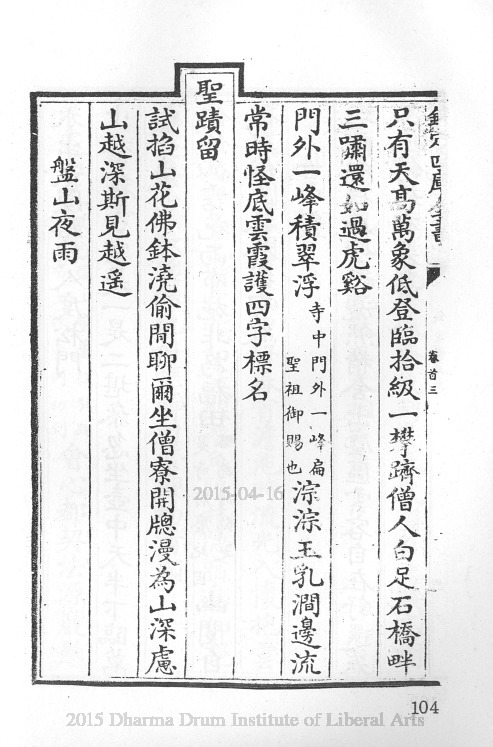 欽定四庫全書
卷首三
只有天高萬象低登臨拾級一攀躋僧人白足石橋畔
三嘯還如過虎谿
門外一峰積翠浮寺中門外一峰扁聖祖御賜也淙淙玉乳澗邊流
常時怪底雲霞護四字標名
聖蹟留
試掐山花佛鉢澆偷閒聊爾坐僧寮開牕漫為山深處
山越深斯見越遥
盤山夜雨
2015-04-16
104
2015 Dharma Drum Institute of Liberal Arts